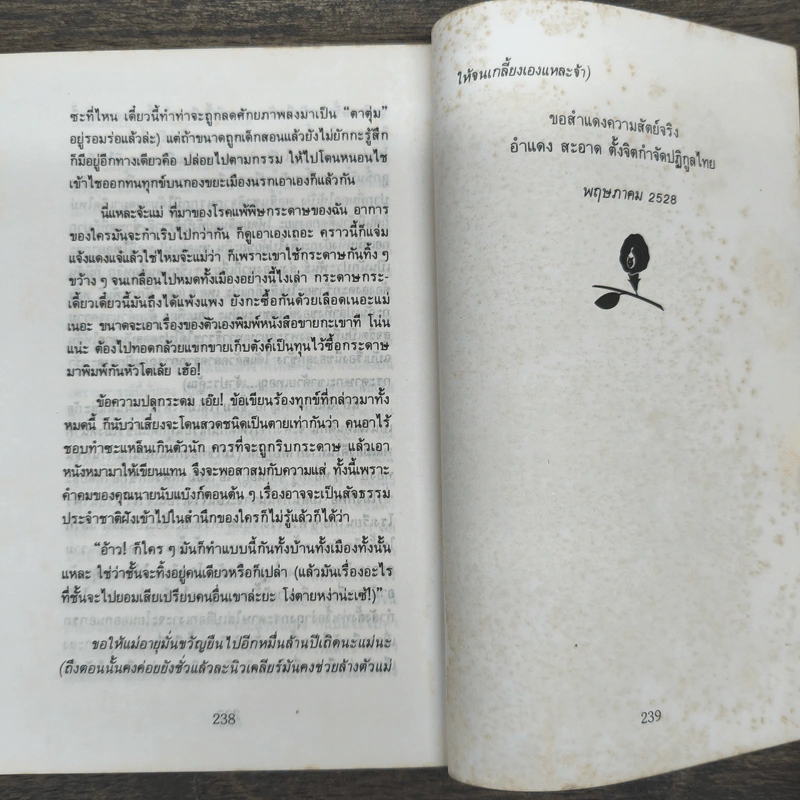 ซะที่ไหน เดี๋ยวนี้ทำท่าจะถูกลดศักยภาพลงมาเป็น “ตาตุ่ม”
อยู่รอมร่อแล้วล่ะ) แต่ถ้าขนาดถูกเด็กสอนแล้วยังไม่ยักกะรู้สึก
ก็มีอยู่อีกทางเดียวคือ ปล่อยไปตามกรรม ให้ไปโดนหนอนไช
เข้าไชออกทนทุกข์บนกองขยะเมืองนรกเอาเองก็แล้วกัน
นี่แหละจ้ะแม่ ที่มาของโรคแพ้พิษกระดาษของฉัน อาการ
ของใครมันจะกำเริบไปกว่ากัน ก็ดูเอาเองเถอะ คราวนี้ก็แจ่ม
แจ้งแดงแจ๋แล้วใช่ไหมจ๊ะแม่ว่า ก็เพราะเขาใช้กระดาษกันทิ้ง ๆ
ขว้าง ๆ จนเกลื่อนไปหมดทั้งเมืองอย่างนี้ไงเล่า กระดาษกระ-
เดี้ยวเดี๋ยวนี้มันถึงได้แพ้งแพง ยังกะซื้อกันด้วยเลือดเนอะแม่
เนอะ ขนาดจะเอาเรื่องของตัวเองพิมพ์หนังสือขายกะเขาที โน่น
แน่ะ ต้องไปทอดกล้วยแขกขายเก็บตังค์เป็นทุนไว้ซื้อกระดาษ
มาพิมพ์กันหัวโตเลัย เฮ้อ!
ข้อความปลุกระดม เอ๊ย! ข้อเขียนร้องทุกข์ที่กล่าวมาทั้ง
หมดนี้ ก็นับว่าเสี่ยงจะโดนสวดชนิดเป็นตายเท่ากันว่า คนอาไร้
ชอบทำซะแหล็นเกินตัวนัก ควรที่จะถูกริบกระดาษ แล้วเอา
หนังหมามาให้เขียนแทน จึงจะพอสาสมกับความแส่ ทั้งนี้เพราะ
คำคมของคุณนายนับแบ๊งก์ตอนต้น ๆ เรื่องอาจจะเป็นสัจธรรม
ประจำชาติฝังเข้าไปในสำนึกของใครก็ไม่รู้แล้วก็ได้ว่า
“อ้าว! ก็ใคร ๆ มันก็ทำแบบนี้กันทั้งบ้านทั้งเมืองทั้งนั้น
แหละ ใช่ว่าชั้นจะทิ้งอยู่คนเดียวหรือก็เปล่า (แล้วมันเรื่องอะไร
ที่ชั้นจะไปยอมเสียเปรียบคนอื่นเขาล่ะยะ โง่ตายหง่าน่ะเซ้!)”
ขอให้แม่อายุมั่นขวัญยืนไปอีกหมื่นล้านปีเถิดนะแม่นะ
(ถึงตอนนั้นคงค่อยยังชั่วแล้วละนิวเคลียร์มันคงช่วยล้างตัวแม่
238
ให้จนเกลี้ยงเองแหละจ้า)
ขอสำแดงความสัตย์จริง
อำแดง สะอาด ตั้งจิตกำจัดปฏิกูลไทย
พฤษภาคม 2528
239